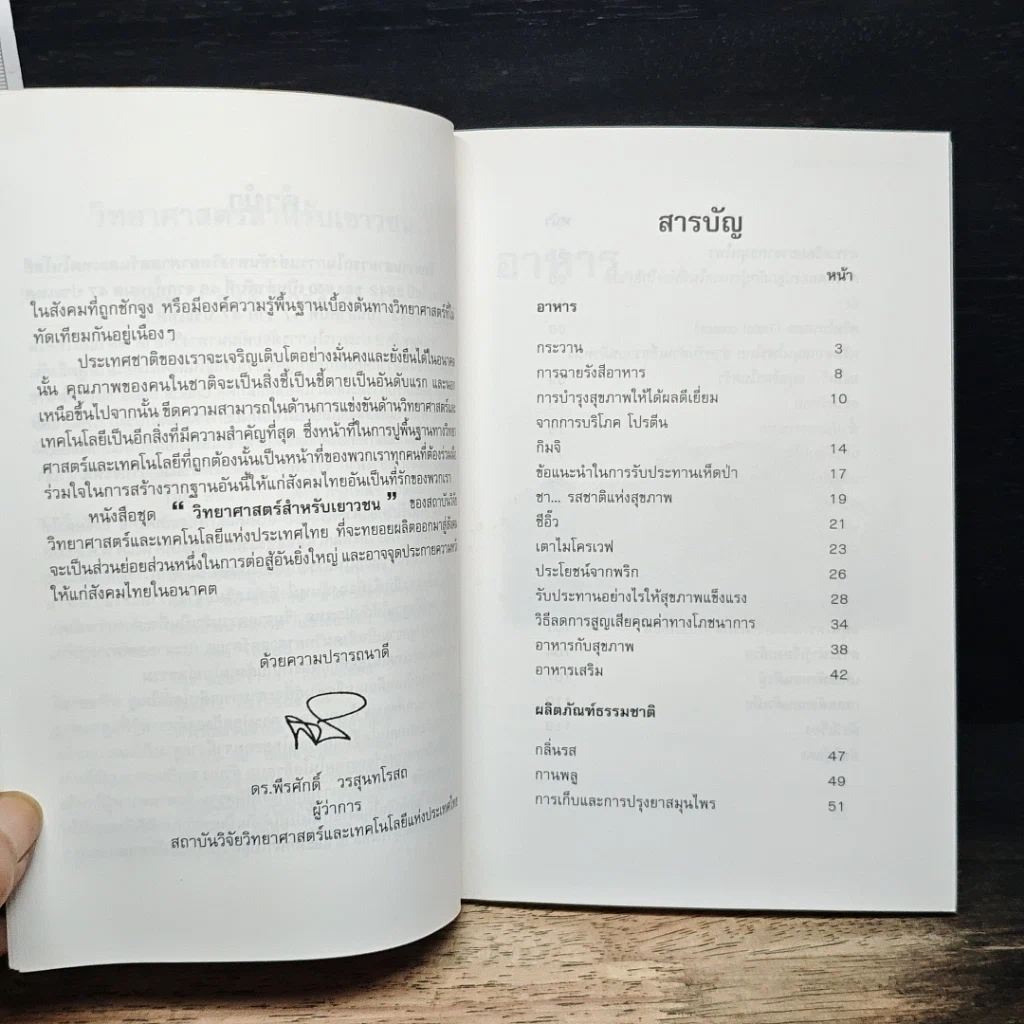 ในสังคมที่ถูกชักจูง หรือมีองค์ความรู้พื้นฐานเบื้องต้นทางวิทยาศาสตร์ที่ไม่
ทัดเทียมกันอยู่เนืองๆ
ประเทศชาติของเราจะเจริญเติบโตอย่างมั่นคงและยั่งยืนได้ในอนาคต
นั้น คุณภาพของคนในชาติจะเป็นสิ่งชี้เป็นชี้ตายเป็นอันดับแรก และนอก
เหนือขึ้นไปจากนั้น ขีดความสามารถในด้านการแข่งขันด้านวิทยาศาสตร์และ
เทคโนโลยีเป็นอีกสิ่งที่มีความสำคัญที่สุด ซึ่งหน้าที่ในการปูพื้นฐานทางวิทยา
ศาสตร์และเทคโนโลยีที่ถูกต้องนั้นเป็นหน้าที่ของพวกเราทุกคนที่ต้องร่วมมือ
ร่วมใจในการสร้างรากฐานอันนี้ให้แก่สังคมไทยอันเป็นที่รักของพวกเรา
หนังสือชุด “ วิทยาศาสตร์สำหรับเยาวชน ” ของสถาบันวิจัย
วิทยาศาสตร์และเทคโนโลยีแห่งประเทศไทย ที่จะทยอยผลิตออกมาสู่สังคม
จะเป็นส่วนย่อยส่วนหนึ่งในการต่อสู้อันยิ่งใหญ่ และอาจจุดประกายความหวัง
ให้แก่สังคมไทยในอนาคต
ด้วยความปรารถนาดี
ดร.พีรศักดิ์ วรสุนทโรสถ
ผู้ว่าการ
สถาบันวิจัยวิทยาศาสตร์และเทคโนโลยีแห่งประเทศไทย
สารบัญ
หน้า
อาหาร
กระวาน 3
การฉายรังสีอาหาร 8
การบำรุงสุขภาพให้ได้ผลดีเยี่ยม 10
จากการบริโภค โปรตีน
กิมจิ 14
ข้อแนะนำในการรับประทานเห็ดป่า 17
ชา... รสชาติแห่งสุขภาพ 19
ซีอิ๊ว 21
เตาไมโครเวฟ 23
ประโยชน์จากพริก 26
รับประทานอย่างไรให้สุขภาพแข็งแรง 28
วิธีลดการสูญเสียคุณค่าทางโภชนาการ 34
อาหารกับสุขภาพ 38
อาหารเสริม 42
ผลิตภัณฑ์ธรรมชาติ
กลิ่นรส 47
กานพลู 49
การเก็บและการปรุงยาสมุนไพร 51